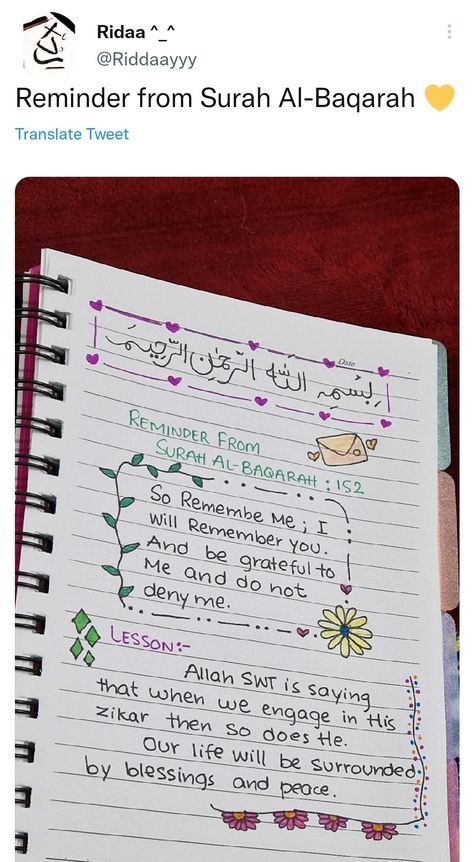 Ridaa ^_^
@Riddaayyy
Reminder from Surah Al-Baqarah 💛
Translate Tweet
Date
بِسْمِهِ اللّٰهِ الرَّحْمٰنِ الرَّحِيْمَ
REMINDER FROM
SURAH AL-BAQARAH : 152
So Remembe Me ; I
will Remember you.
And be grateful to
Me and do not
deny me.
LESSON:-
Allah SWT is saying
that when we engage in His
zikar then so does He.
Our life will be surrounded
by blessings and peace.